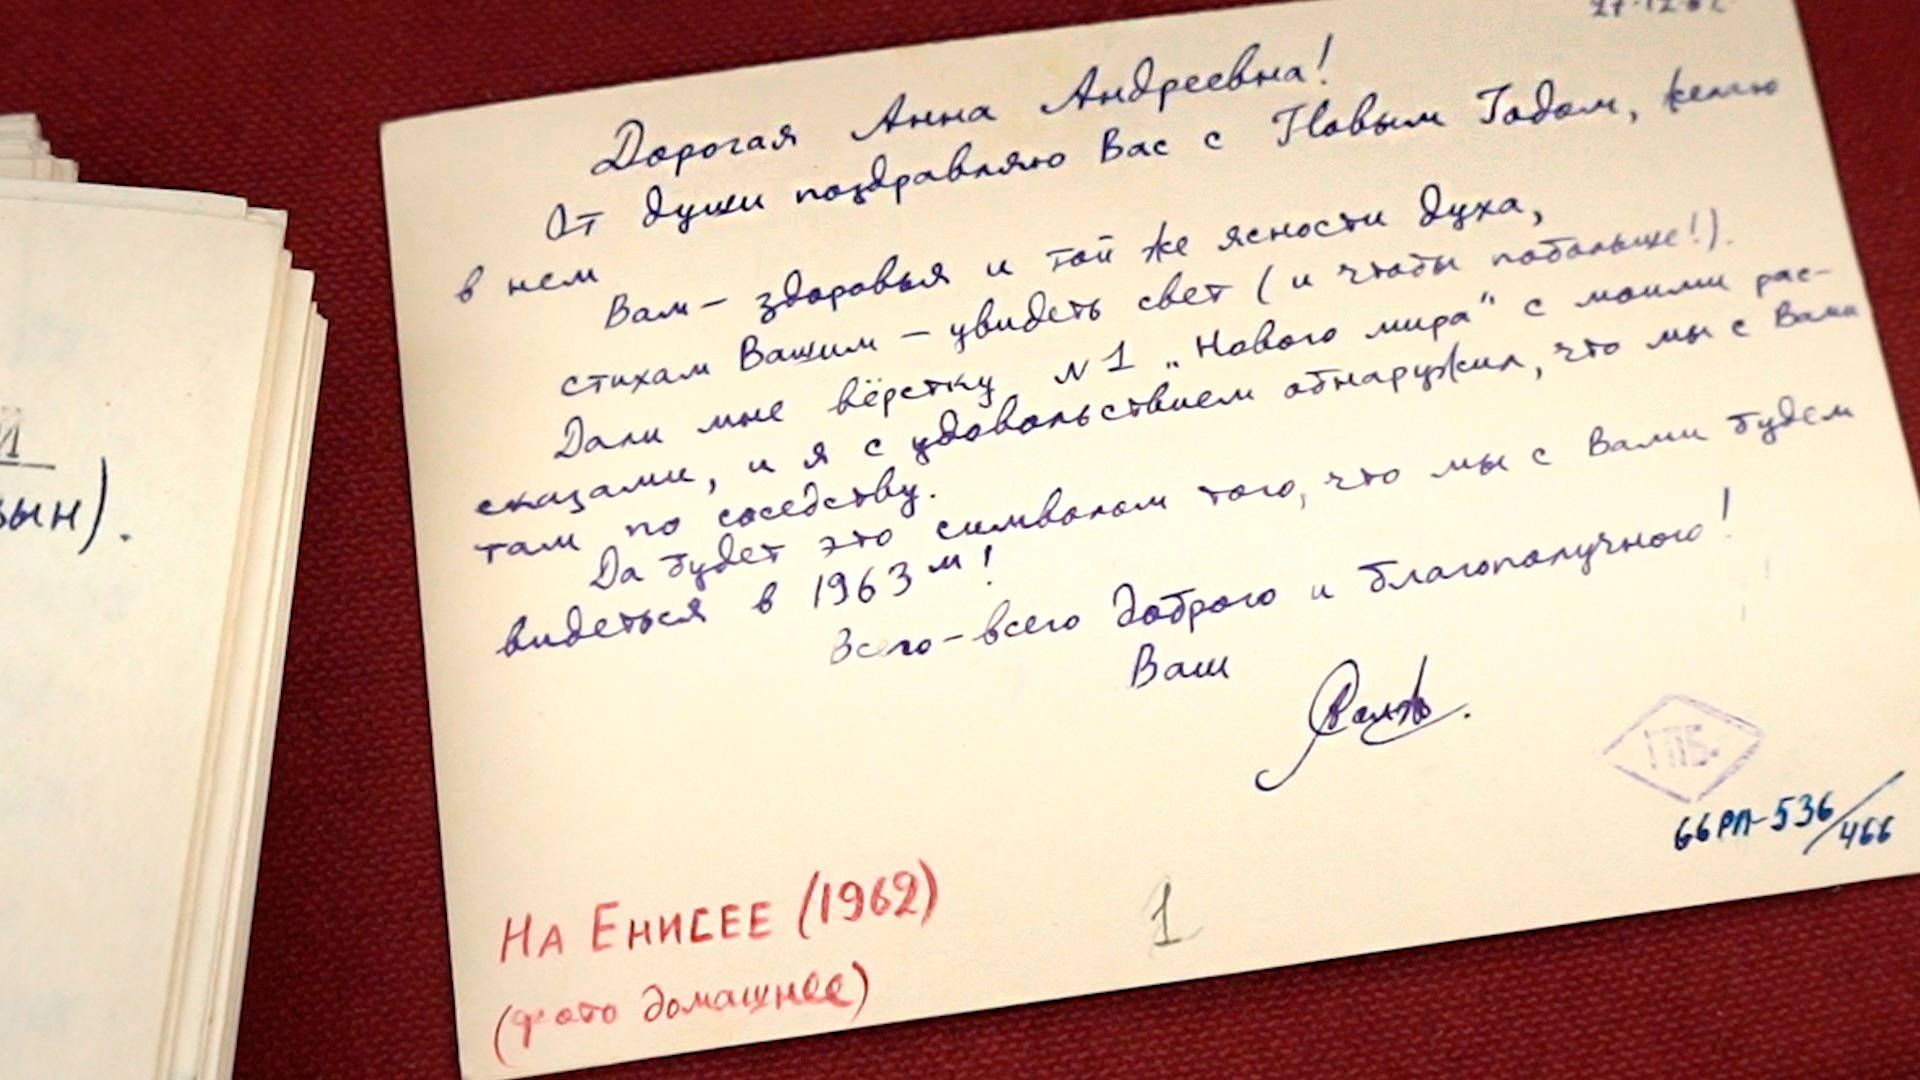 27.12.62
Дорогая Анна Андреевна!
От души поздравляю Вас с Новым Годом, желаю
в нем
Вам – здоровья и той же ясности духа,
стихам Вашим – увидеть свет (и чтобы побольше!).
Дали мне вёрстку №1 „Нового мира" с моими рас-
сказами, и я с удовольствием обнаружил, что мы с Вами
там по соседству.
Да будет это символом того, что мы с Вами будем
видеться в 1963м!
Всего-всего доброго и благополучного!
Ваш
ГПБ.
66РП-536/466
НА ЕНИСЕЕ (1962)
(фото домашнее)
1
Й
ын).